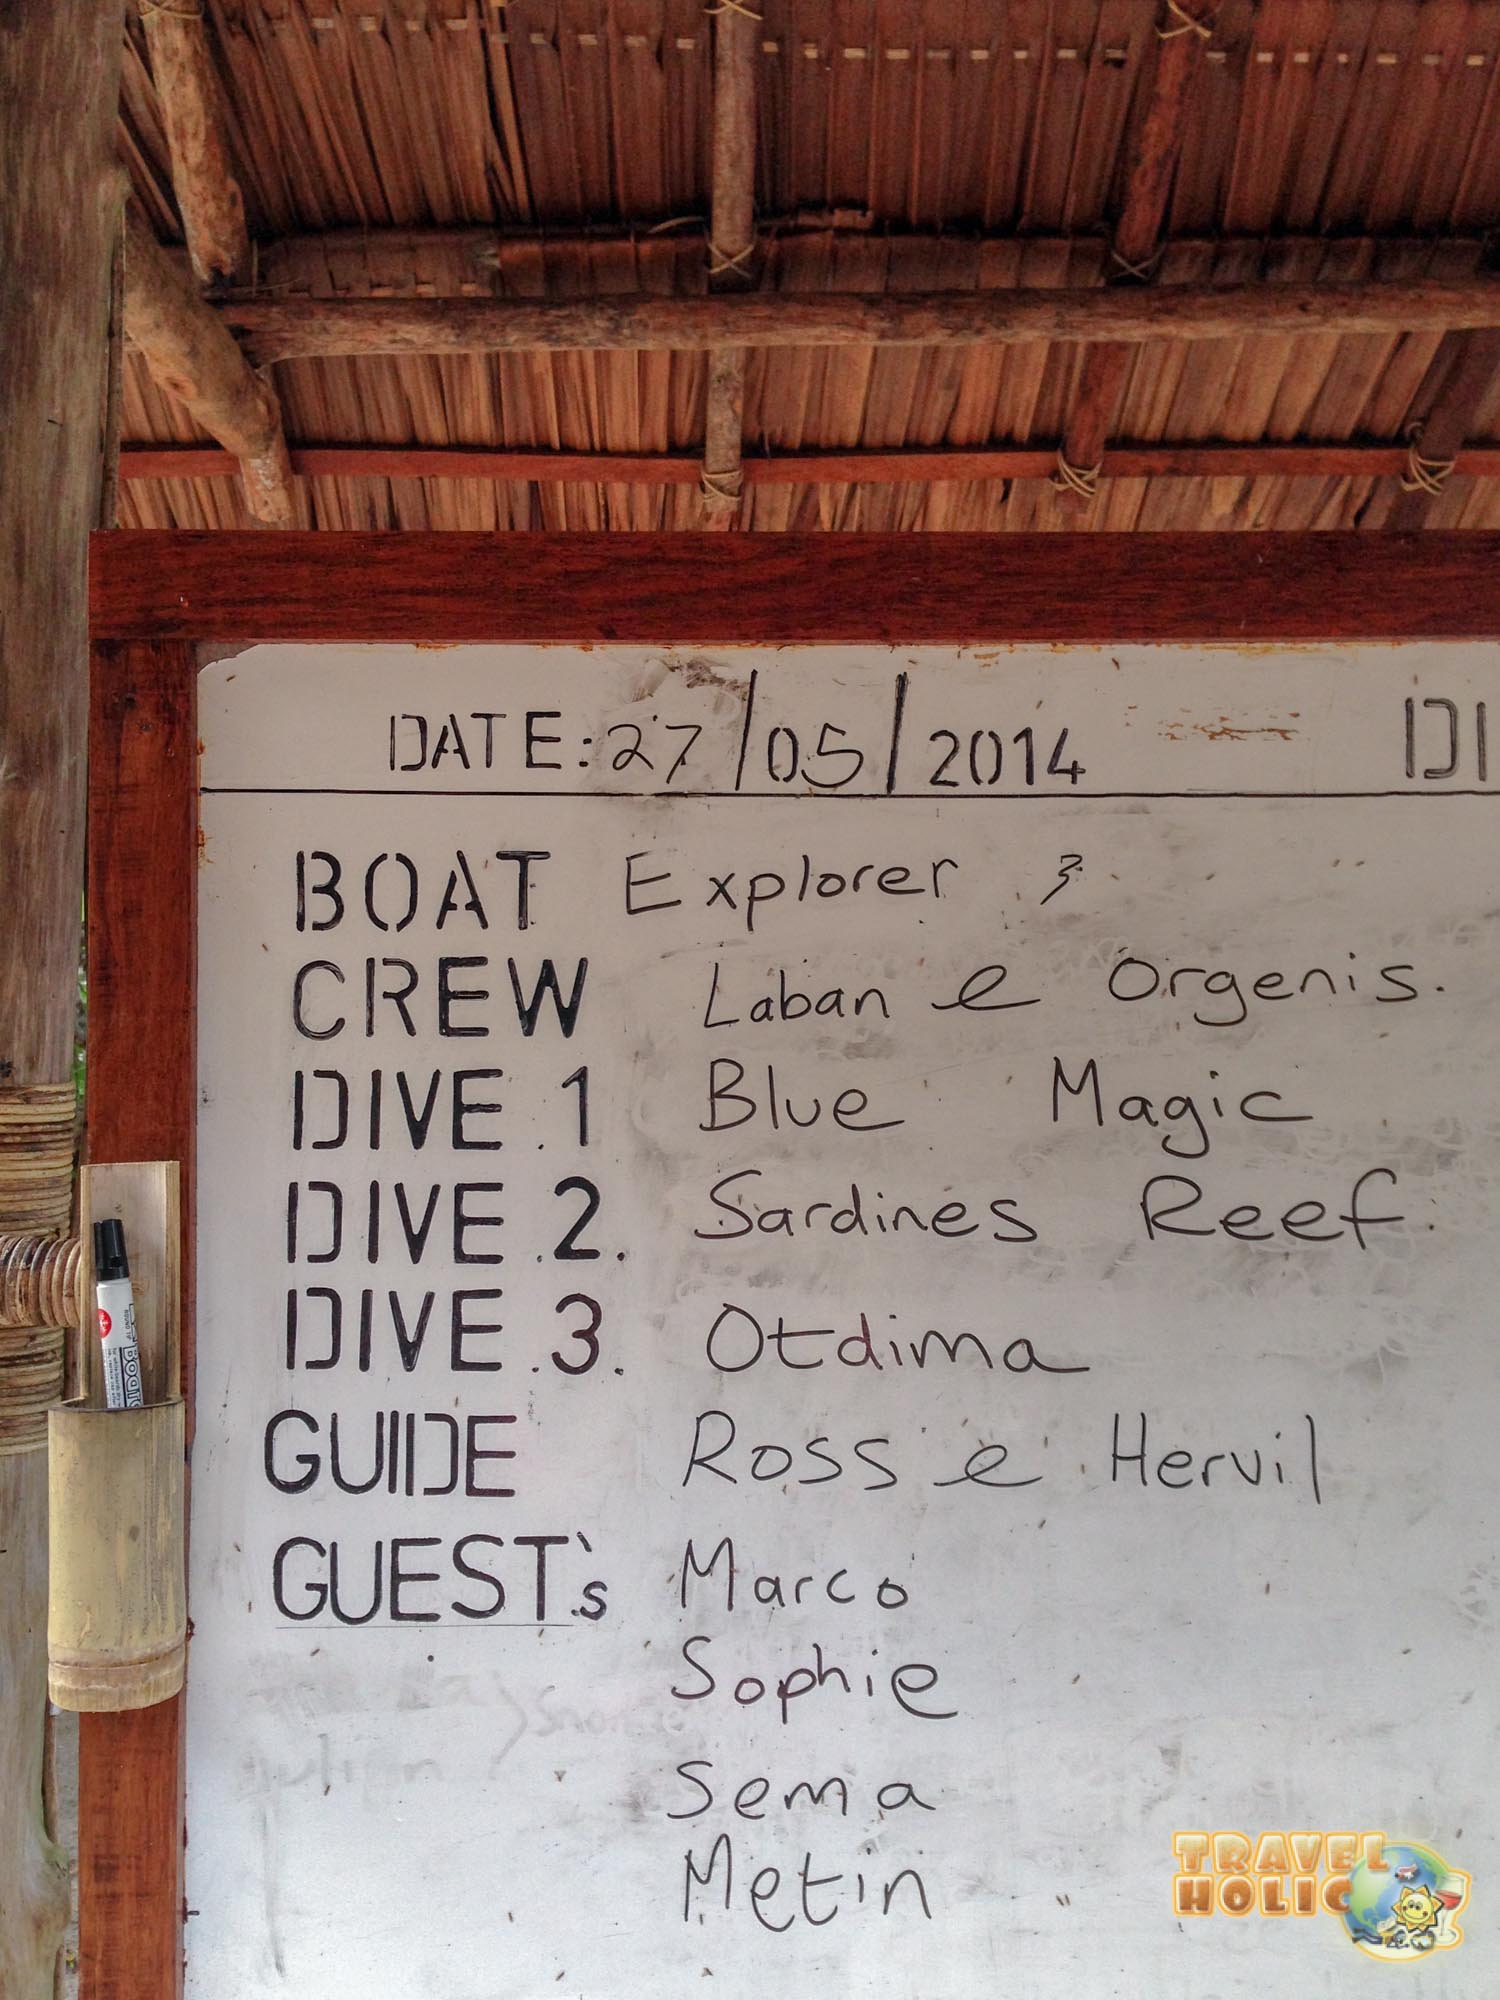 DATE: 27/05/2014 DI
BOAT Explorer 3
CREW Laban e Orgenis.
DIVE .1 Blue Magic
DIVE .2. Sardines Reef.
DIVE .3. Otdima
GUIDE Ross e Hervil
GUEST's Marco
Sophie
Sema
Metin
TRAVEL
HOLIC